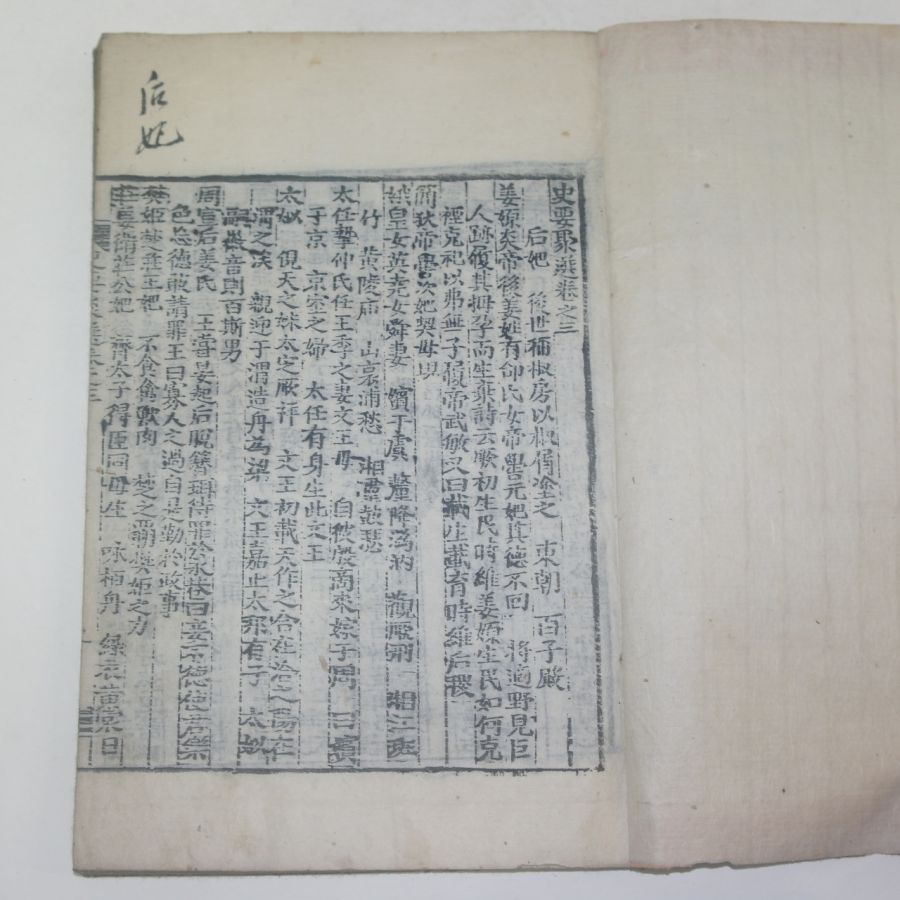 后妃
史要聚選卷之三
后妃 後世稱椒房以椒屑塗之 東朝 百子殿
姜嫄炎帝後姜姓有邰氏女帝嚳元妃其德不回 將適野見巨
人跡履其拇孕而生棄詩云厥初生民時維姜嫄生民如何克
禋克祀以弗無子履帝武敏又曰載生載育時維后稷
簡狄帝嚳次妃契母
娥皇女英堯女舜妻 嬪于虞 釐降溈汭 觀厥刑 湘江班
竹 黃陵庙 山哀浦愁 湘靈皷瑟
太任摯仲氏任王季之妻文王母 自彼殷商來嫁于周 曰嬪
于京 京室之婦 太任有身生此文王
太姒 俔天之妹太定厥祥 文王初載天作之合在洽之陽在
渭之涘 親迎于渭造舟為梁 文王嘉止太邦有子 太姒
嗣徽音則百斯男
周宣后姜氏 王嘗晏起后脫簪珥待罪於永巷曰妾不德使君樂
色忘德敢請罪王曰寡人之過自是勤於政事
樊姬楚莊王妃 不食禽獸肉 楚之霸樊姬之力
莊姜衛莊公妃 齊太子得臣同母生 咏柏舟 綠衣黃裳曰